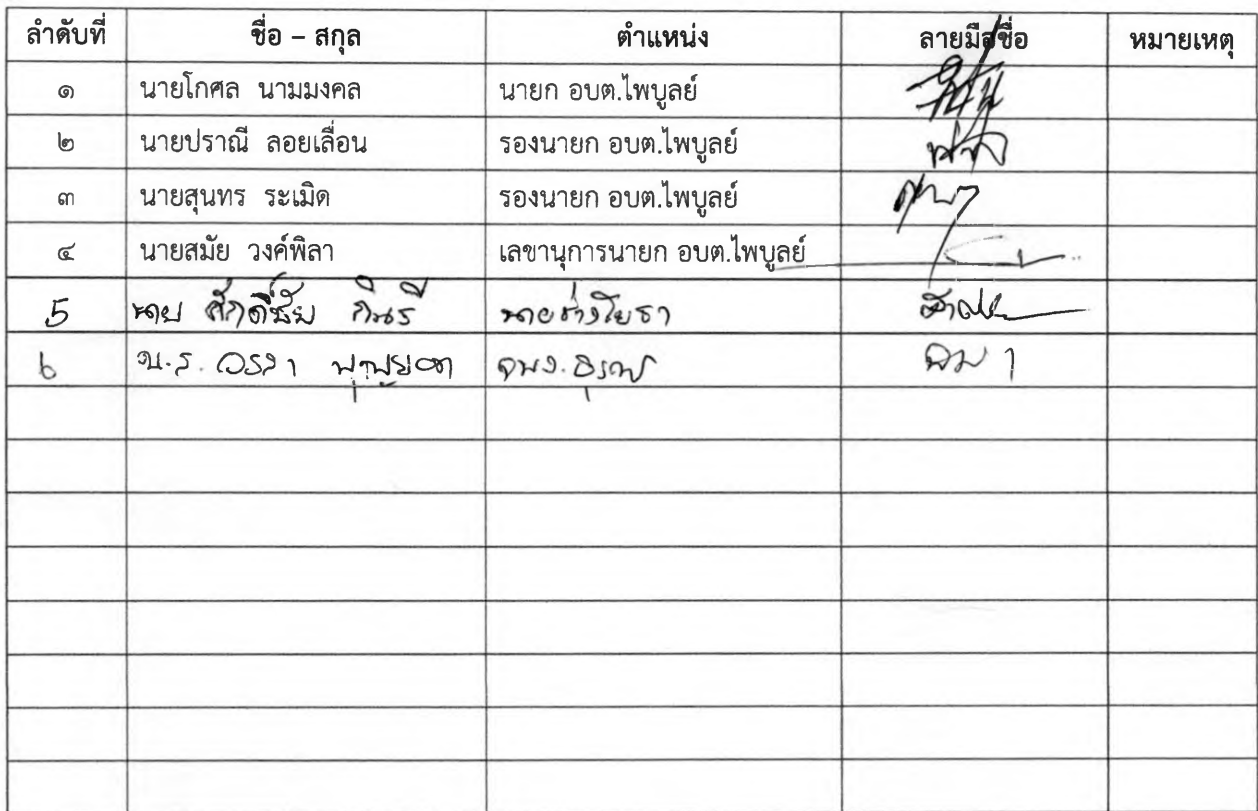 ลำดับที่ ชื่อ – สกุล ตำแหน่ง ลายมือชื่อ หมายเหตุ
๑ นายโกศล นามมงคล นายก อบต.ไพบูลย์
๒ นายปราณี ลอยเลื่อน รองนายก อบต.ไพบูลย์
๓ นายสุนทร ระเมิด รองนายก อบต.ไพบูลย์
๔ นายสมัย วงค์พิลา เลขานุการนายก อบต.ไพบูลย์
5 นาย ศักดิ์ชัย กินรี นายช่างโยธา
6 น.ส. จพง.ธุรการ